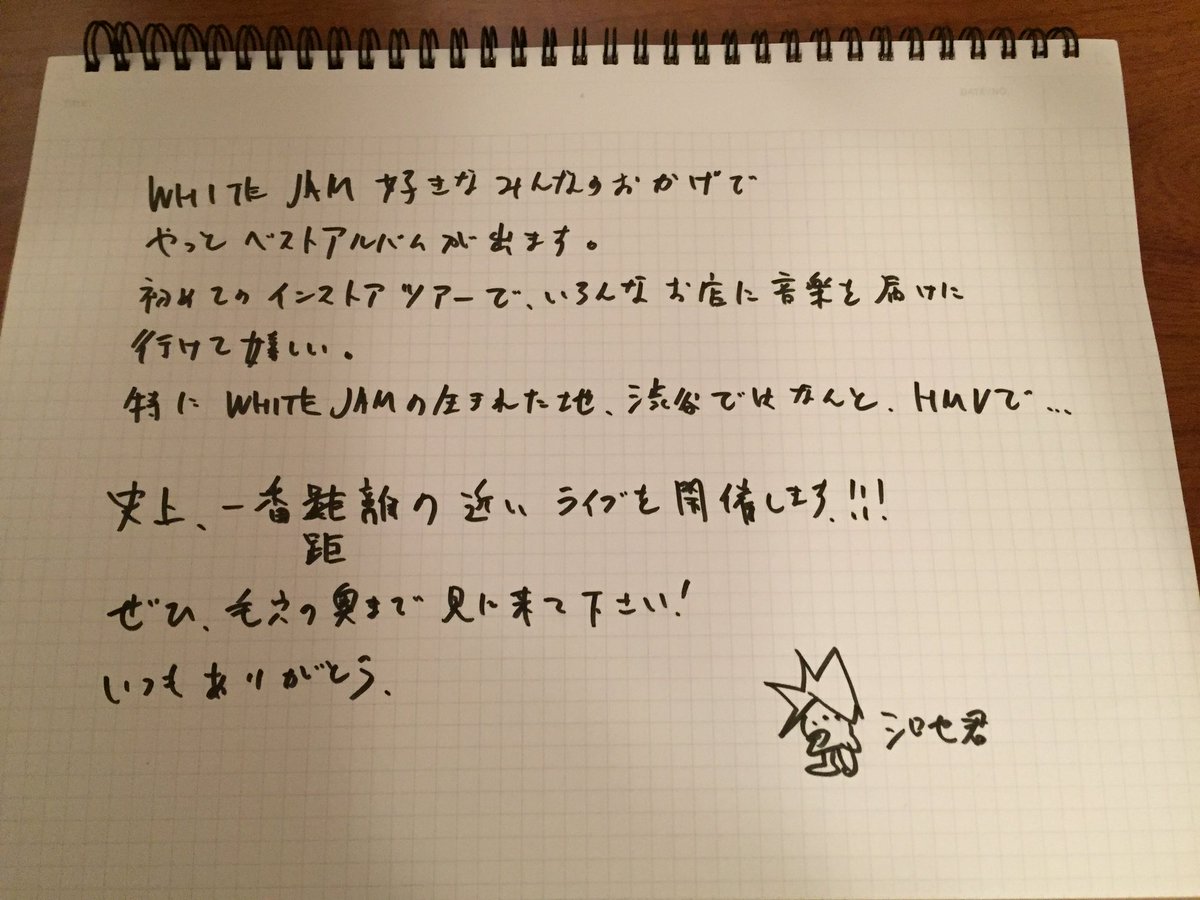 WHITE JAM 好きなみんなのおかげで
やっとベストアルバムが出ます。
初めてのインストアツアーで、いろんなお店に音楽を届けに
行けて嬉しい。
特に WHITE JAMの生まれた地、渋谷ではなんと、HMVで...
史上、一番距離の近いライブを開催します!!!
距
ぜひ、毛穴の奥まで見に来て下さい!
いつもありがとう、
シロセ君